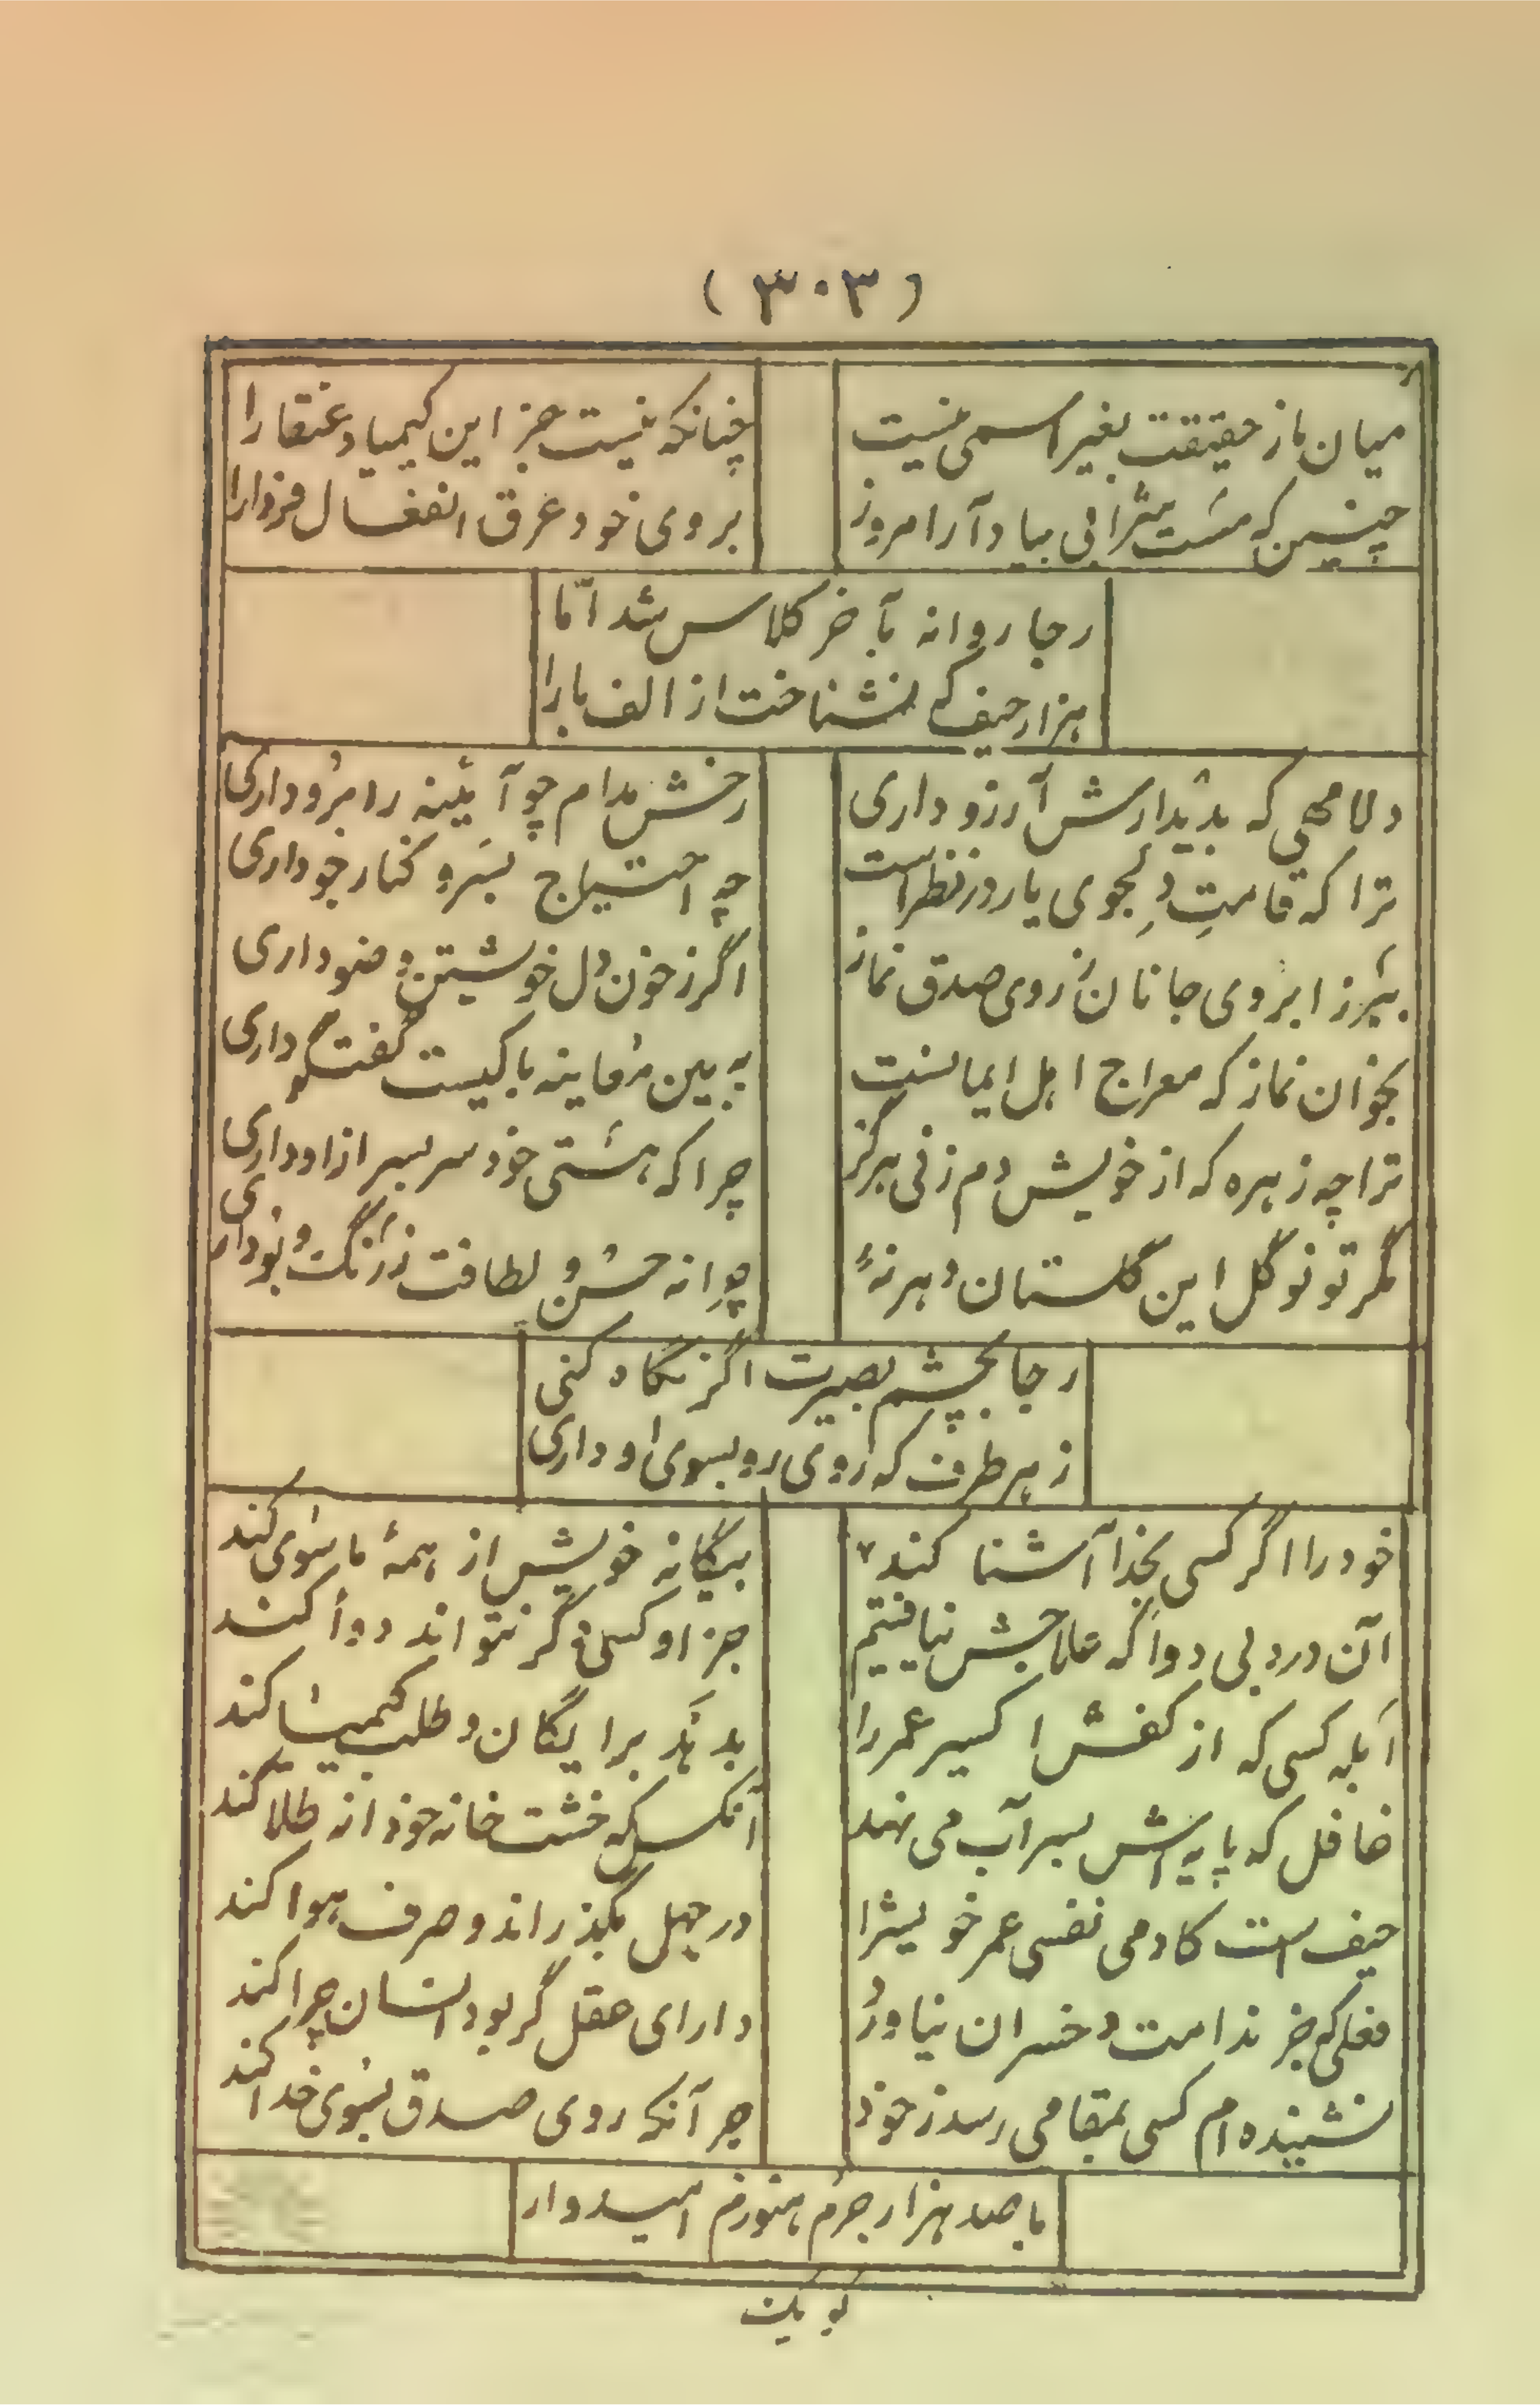 (۳۰۳)
میان ما ز حقیقت بغیر اسمی نیست
چنانکه نیست جز این کیمیا و عنقا را
چنین که مست شرابی بیاد آر امروز
بروی خود عرق انفعال فردا را
رجا روانه بآخر کلاس شد امّا
هزار حیف که نشناخت از الف با را
دلا مهی که بدیدارش آرزو داری
رخش مدام چو آئینه رابرو داری
ترا که قامتِ دلجوی یار در نظر است
چه احتیاج بسرو کنار جو داری
ببر ز ابروی جانان ز روی صدق نماز
اگر ز خون دل خویشتن وضو داری
بخوان نماز که معراج اهل ایمانست
به بین معاینه با کیست گفتگو داری
ترا چه زهره که از خویش دم زنی هرگز
چرا که هستی خود سر بسر از او داری
مگر تو نوگل این گلستان دهر نهٔ
چرا نه حسن و لطافت نه رنگ و بو داری
رجا بچشم بصیرت اگر نگاه کنی
ز هر طرف که روی رو بسوی او داری
خود را اگر کسی بخدا آشنا کند
بیگانه خویش از همهٔ ما سوی کند
آن درد بی دوا که علاجش نیافتیم
جز او کسی دگر نتواند دوا کند
ابله کسی که از کفش اکسیر عمر را
بدهد برایگان و طلب کیمیا کند
غافل که پایه اش بسر آب می نهد
آنکس که خشت خانه خود از طلا کند
حیف است کادمی نفسی عمر خویشرا
در جهل بگذراند و صرف هوا کند
فعلی که جز ندامت و خسران نیاورد
دارای عقل گر بود انسان چرا کند
نشنیده ام کسی بمقامی رسد ز خود
جز آنکه روی صدق بسوی خدا کند
با صد هزار جرم هنوزم امیدوار